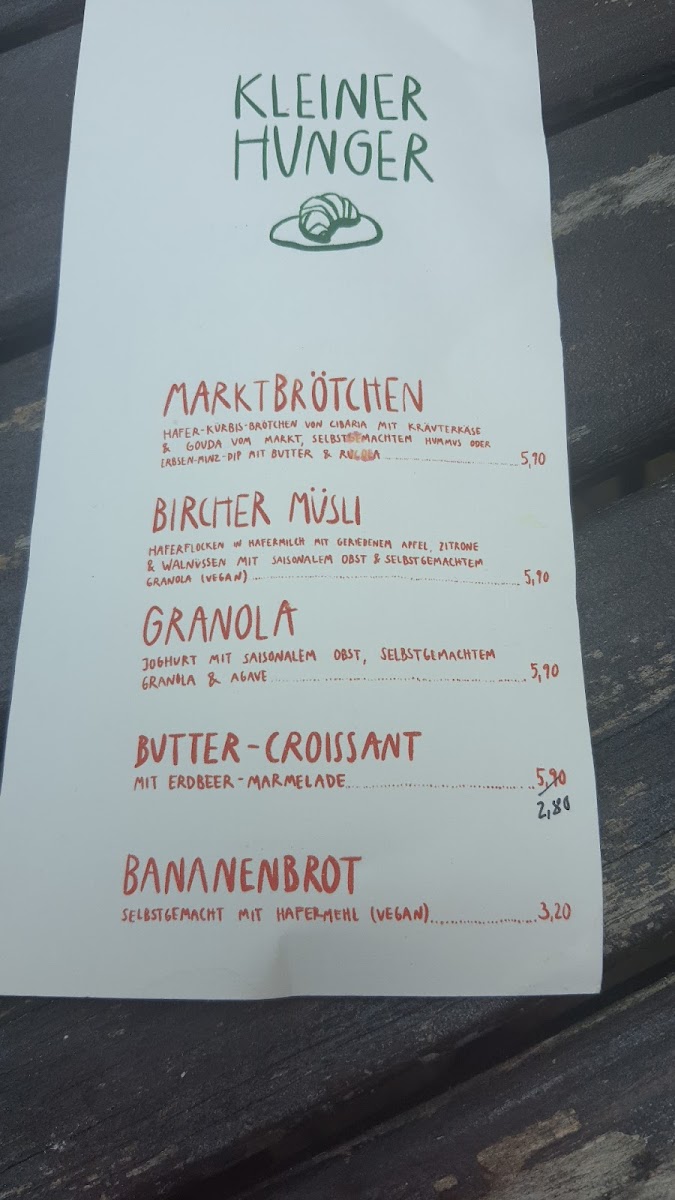 KLEINER
HUNGER
MARKTBRÖTCHEN
HAFER-KÜRBIS-BRÖTCHEN VON CIBARIA MIT KRÄUTERKÄSE
& GOUDA VOM MARKT, SELBSTGEMACHTEM HUMMUS ODER
ERBSEN-MINZ-DIP MIT BUTTER & RUCOLA 5,90
BIRCHER MÜSLI
HAFERFLOCKEN IN HAFERMILCH MIT GERIEBENEM APFEL, ZITRONE
& WALNÜSSEN MIT SAISONALEM OBST & SELBSTGEMACHTEM
GRANOLA (VEGAN) 5,90
GRANOLA
JOGHURT MIT SAISONALEM OBST, SELBSTGEMACHTEM
GRANOLA & AGAVE 5,90
BUTTER-CROISSANT
MIT ERDBEER-MARMELADE 5,90
2,80
BANANENBROT
SELBSTGEMACHT MIT HAFERMEHL (VEGAN) 3,20